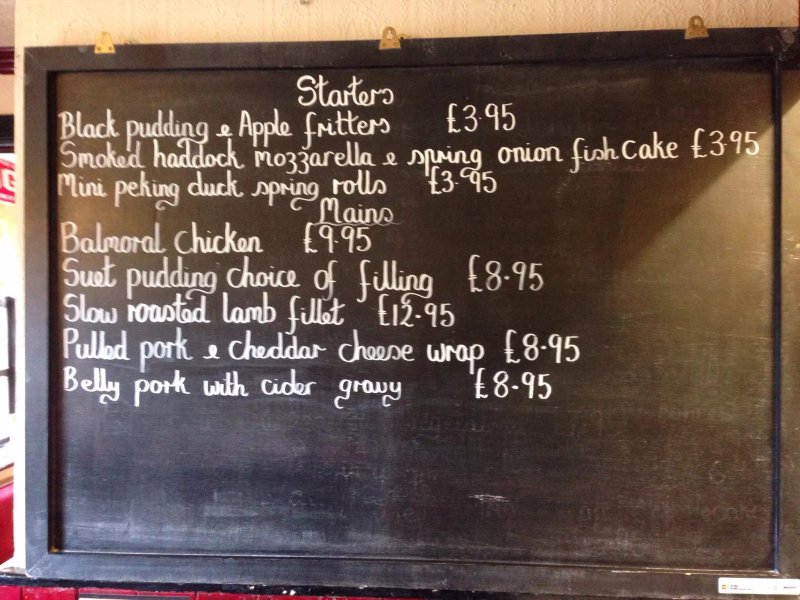 Starters
Black pudding e Apple fritters £3.95
Smoked haddock mozzarella e spring onion fish cake £3.95
Mini peking duck spring rolls £3.95
Mains
Balmoral Chicken £9.95
Suet pudding choice of filling £8.95
Slow roasted lamb fillet £12.95
Pulled pork e cheddar cheese wrap £8.95
Belly pork with cider gravy £8.95